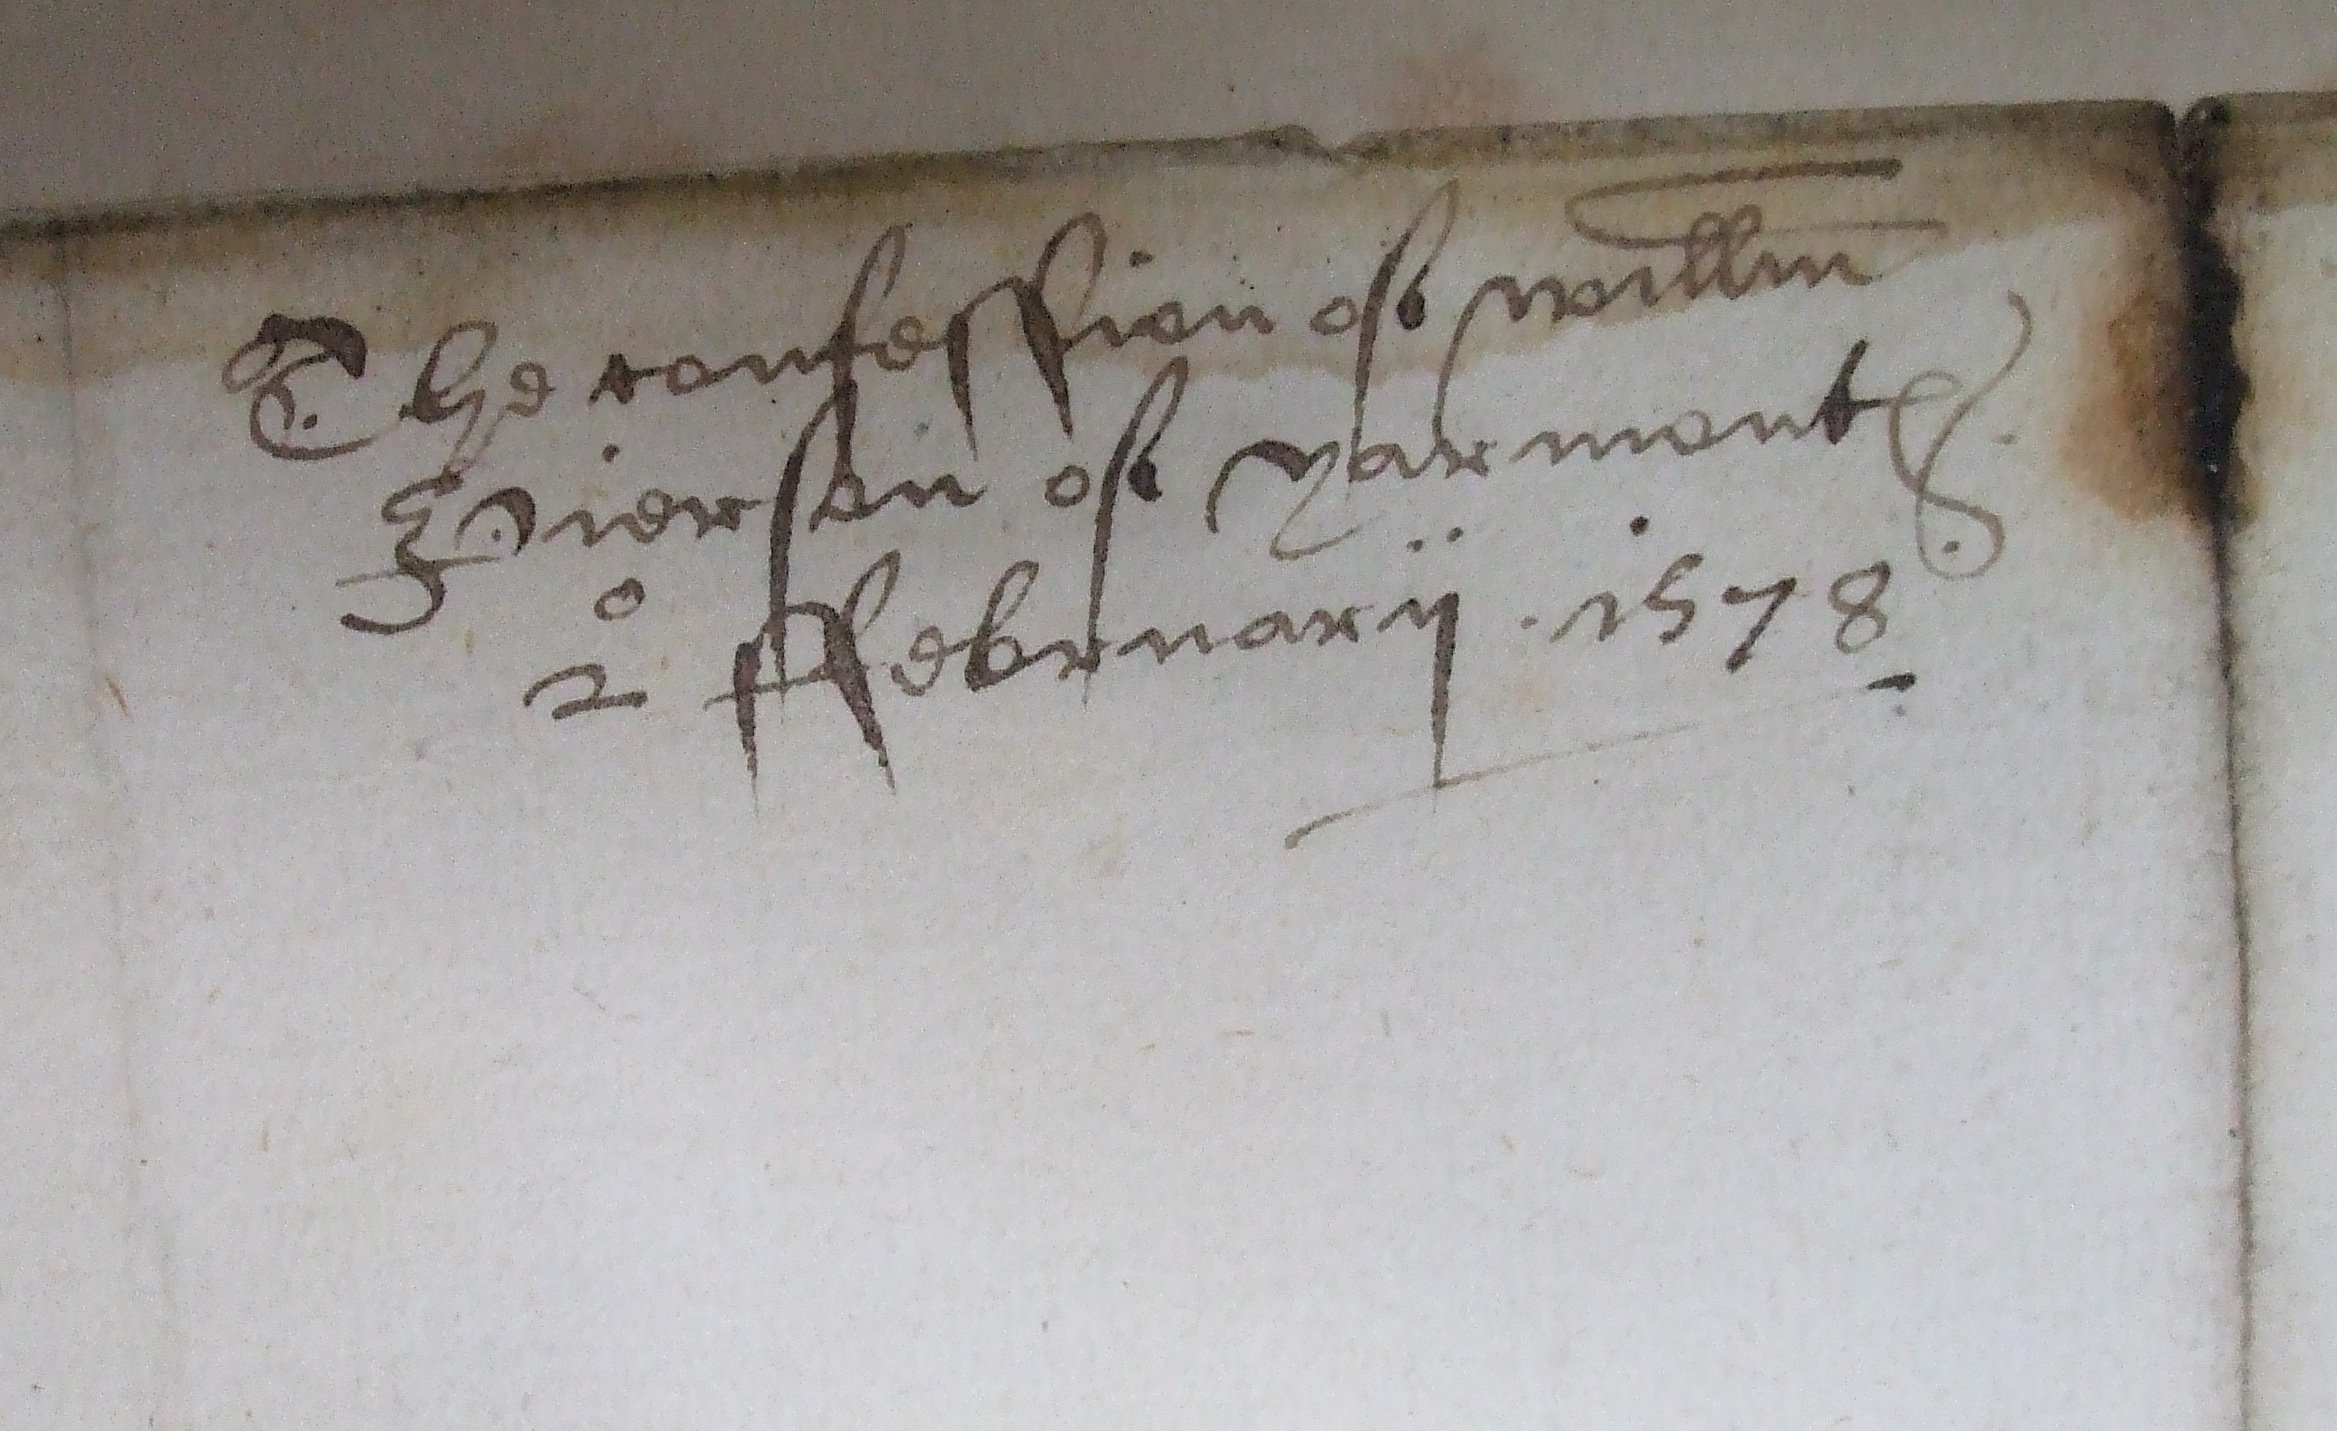 The confession of Willm
Pierson of Yarmouth
2º ffebruarij . 1578